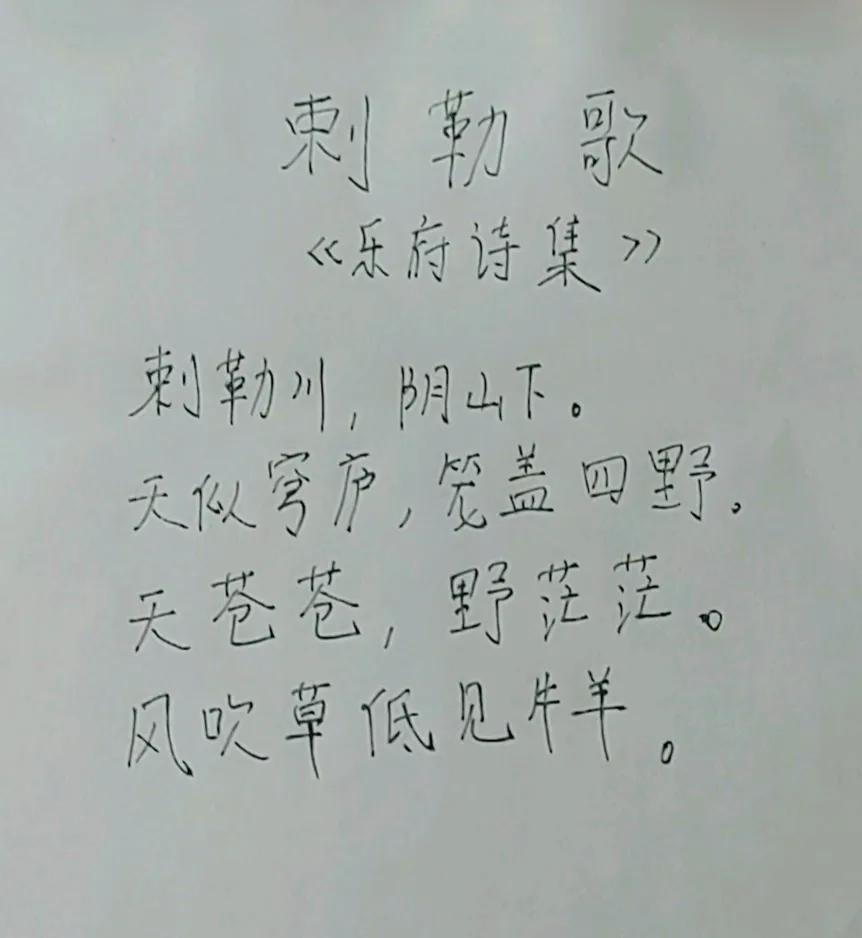 刺勒歌
《乐府诗集》
刺勒川,阴山下。
天似穹庐,笼盖四野。
天苍苍,野茫茫。
风吹草低见牛羊。